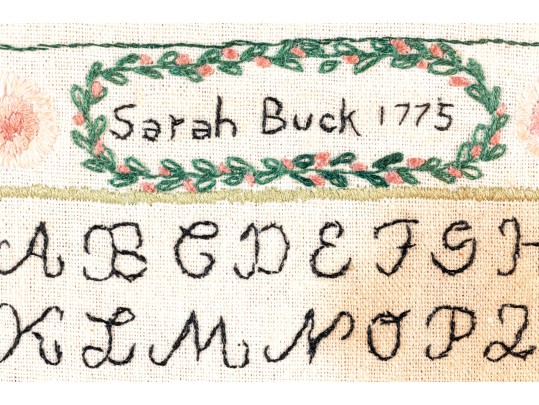 Sarah Buck 1775
A B C D E F G H
K L M N O P Q